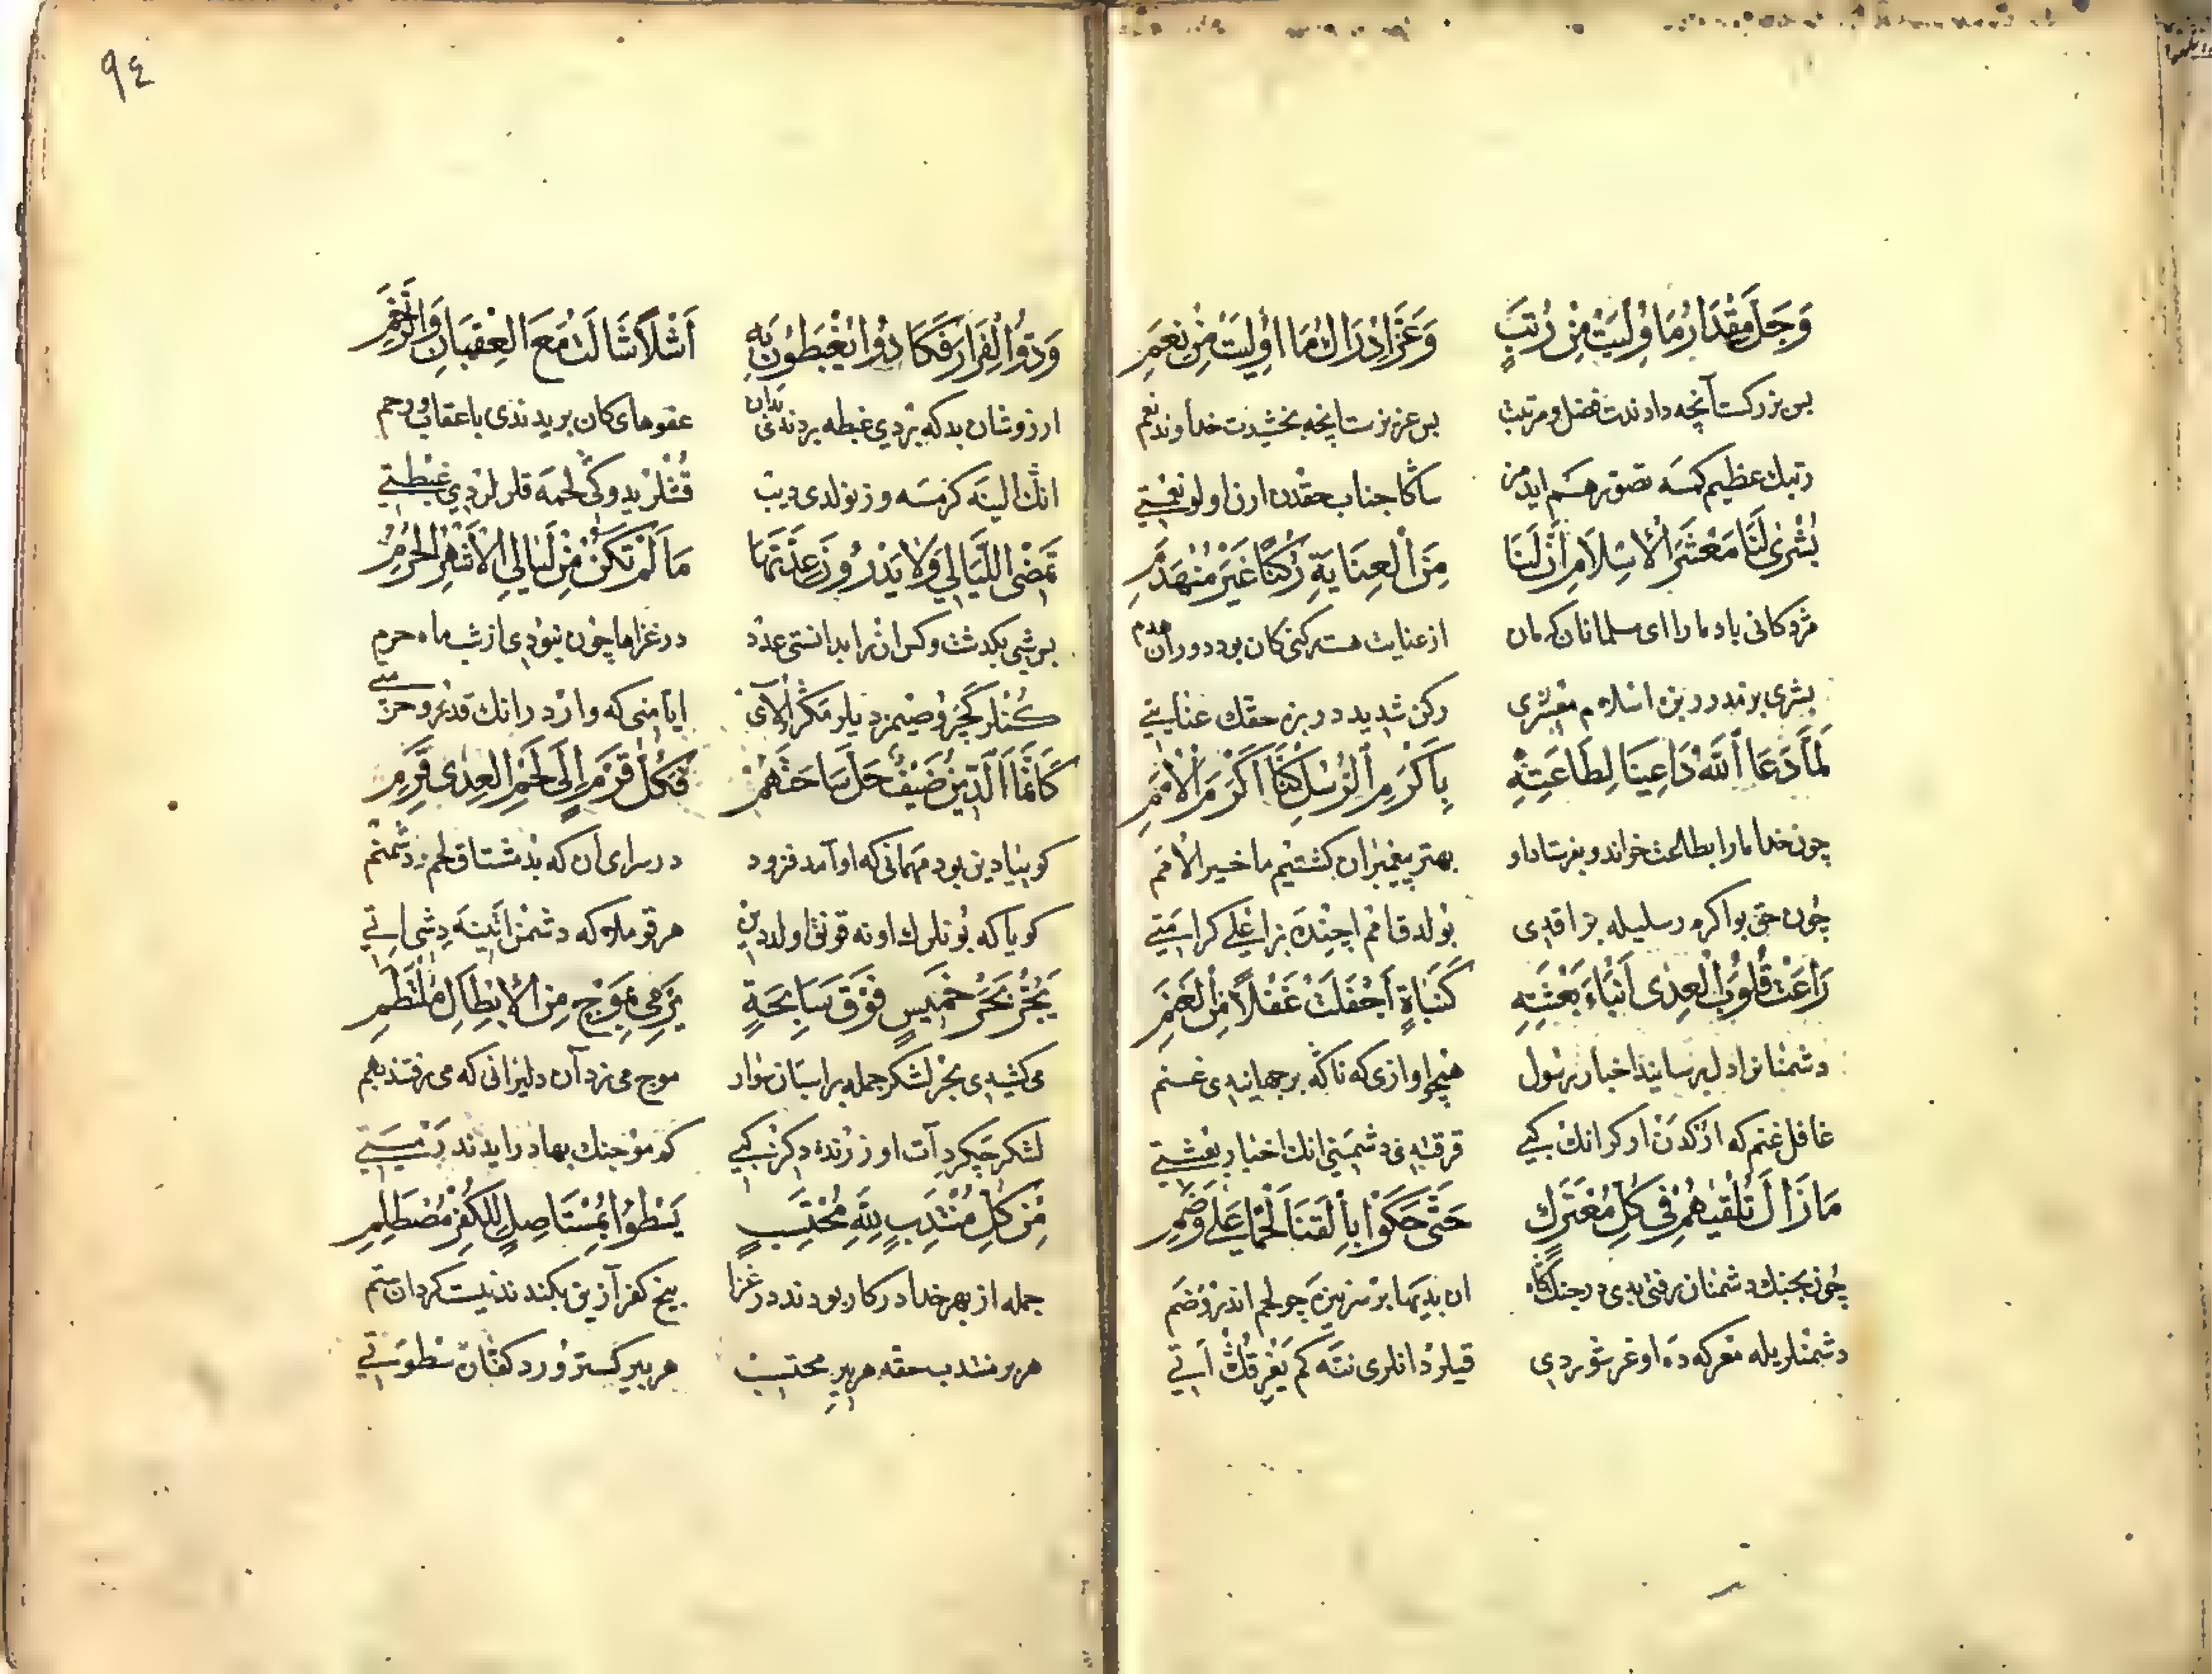 وَجَلَّ مِقْدَارُ مَا وُلِّيتَ مِنْ رُتَبٍ وَعَزَّ اِدْرَاكُ مَا اُولِيتَ مِنْ نِعَمِ
بس بزرکست آنچه دادندت فضل و مرتبت بس عزیزست اینچه بخشیدت خداوند نعم
رتبك عظیم کمسه تصور همم ایدمز ساكا جناب حقدن ارن اولو نعمتی
بُشْرٰى لَنَا مَعْشَرَ الْاِسْلَامِ اِنَّ لَنَا مِنَ الْعِنَايَةِ رُكْنًا غَيْرَ مُنْهَدِمِ
مژدکانی باد مارا ای مسلمانان که مان از عنایت هست رکنی کان بود دور از هدم
بشری بزمدر بزن اسلام معشری رکن شدید در بزه حقك عنایتی
لَمَّا دَعَا اللّٰهُ دَاعِينَا لِطَاعَتِهِ بِاَكْرَمِ الرُّسْلِ كُنَّا اَكْرَمَ الْاُمَمِ
چون خدا ما را بطاعت خواند و بفرستاد او بهتر پیغمبران کشتیم ما خیر الامم
چون حق بو اکرم رسلیله بزا قدی بولدق امم اچنده بز اعلی کرامتی
رَاعَتْ قُلُوبَ الْعِدٰى اَنْبَاءُ بِعْثَتِهِ كَنَبْاَةٍ اَجْفَلَتْ غُفْلًا مِنَ الْغَنَمِ
دشمنانرا دل بترسانید اخبار رسول همچو اوازی که ناکه برجهانیدی غنم
غافل غنم که ارکدن اورکر انك کبی قرقتدی دشمنی انك اخبار بعثتی
مَا زَالَ يَلْقٰيهُمُ فِي كُلِّ مُعْتَرَكٍ حَتّٰى حَكَوْا بِالْقَنَا لَحْمًا عَلٰى وَضَمِ
چون بجنك دشمنان رفتی بدی در جنك‌كاه ان بدیها بر سر نیزه چو لحم اندر وضم
دشمنلریله معرکه ده اوغرشوردی قیلردانلری نته کم یغرقلك اتی
وَدُّوا الْفِرَارَ فَكَادُوا يَغْبِطُونَ بِهِ اَشْلَاءَ شَالَتْ مَعَ الْعِقْبَانِ وَالرَّخَمِ
ارزوشان بد که بردی غبطه بردندی بدان عضوهای کان بریدندی با عقاب و رخم
انك الینه کرمسه وز نولدی دیب قشلر یدوکی لحمه قلرلردی غبطتی
تَمْضِى اللَّيَالِي وَلَا يَدْرُونَ عِدَّتَهَا مَا لَمْ تَكُنْ مِنْ لَيَالِي الْاَشْهُرِ الْحُرُمِ
بس شبی بکذشت و کس انرا بدانستی عدد در غزاها چون نبودی از شب ماه حرم
کنلر کچر و صیمزدیلر مکر الای ایامنی که واردر انك قدر و حرمتی
كَاَنَّمَا الدِّينُ ضَيْفٌ حَلَّ سَاحَتَهُمْ بِكُلِّ قَرْمٍ اِلٰى لَحْمِ الْعِدٰى قَرِمِ
کوییا دین بود مهمانی که او آمد فرود در سرای ان که بد مشتاق لحم دشمنم
کویا که بونلرك اونه قونق اولدین هر قوملاه که دشمن اتینه دشی اتی
يَجُرُّ بَحْرَ خَمِيسٍ فَوْقَ سَابِحَةٍ يَرْمِي بِمَوْجٍ مِنَ الْاَبْطَالِ مُلْتَطِمِ
می کشیدی بحر لشکر جمله بر اسبان سوار موج می زد آن دلیرانی که می رفتند بهم
لشکر چکردی آت اوزرنده دکز کبی که موجنك بهادر ایدند رمیتی
مِنْ كُلِّ مُنْتَدِبٍ لِلّٰهِ مُحْتَسِبٍ يَسْطُوا بِمُسْتَاْصِلٍ لِلْكُفْرِ مُصْطَلِمِ
جمله از بهر خدا در کار بودند در غزا بیخ کفر از بن بکندند نیست کردان ستم
هر بر منتدب حقه هر بر محتسب هر بیر کستروردی کفاره سطوتی
٩٤